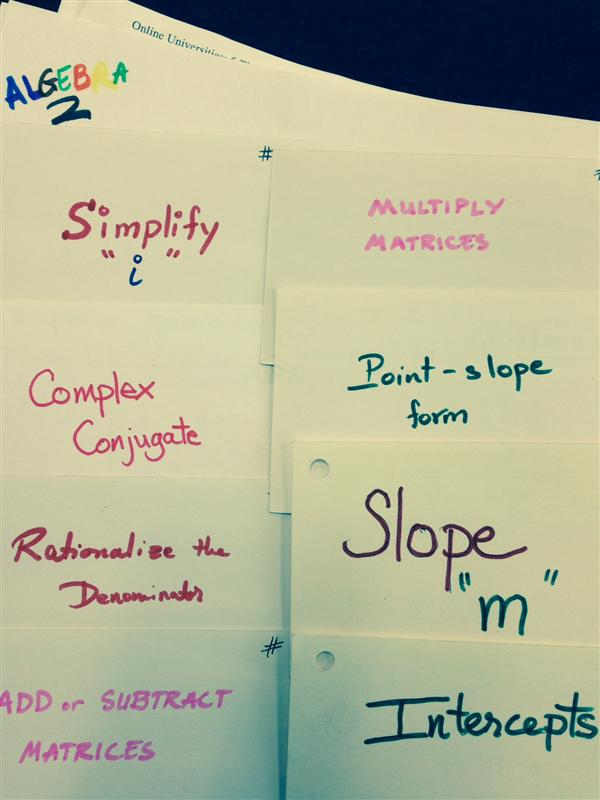 Online Universities
ALGEBRA
2
#
Simplify
"i"
Complex
Conjugate
Rationalize the
Denominator
#
ADD or SUBTRACT
MATRICES
#
MULTIPLY
MATRICES
Point-slope
form
Slope
"m"
Intercepts